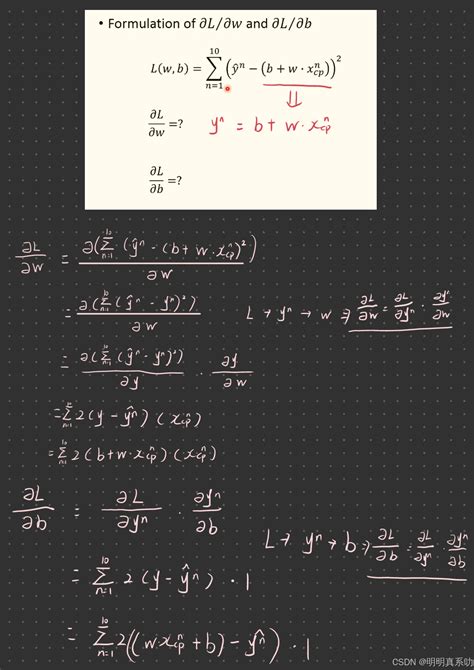 • Formulation of ∂L/∂w and ∂L/∂b
L(w, b) = ∑_{n=1}^{10} (ŷⁿ − (b + w · xⁿ_cp))²
∂L/∂w =?
yⁿ = b + w · xⁿ_cp
∂L/∂b =?
∂L/∂w = ∂(∑_{n=1}^{10} (ŷⁿ − (b + w · xⁿ_cp)²)/∂w
= ∂(∑_{n=1}^{10} (ŷⁿ − yⁿ)²)/∂w
L → yⁿ → w ⇒ ∂L/∂w = ∂L/∂yⁿ · ∂yⁿ/∂w
= ∂(∑_{n=1}^{10} (ŷⁿ − yⁿ)²)/∂y · ∂y/∂w
= ∑_{n=1}^{10} 2(y − ŷⁿ)(xⁿ_cp)
= ∑_{n=1}^{10} 2(b + w · xⁿ_cp) · (xⁿ_cp)
∂L/∂b = ∂L/∂yⁿ · ∂yⁿ/∂b
L → yⁿ → b ⇒ ∂L/∂b = ∂L/∂yⁿ · ∂yⁿ/∂b
= ∑_{n=1}^{10} 2(y − ŷⁿ) · 1
= ∑_{n=1}^{10} 2((w · xⁿ_cp + b) − ŷⁿ) · 1
CSDN @明明真系叻